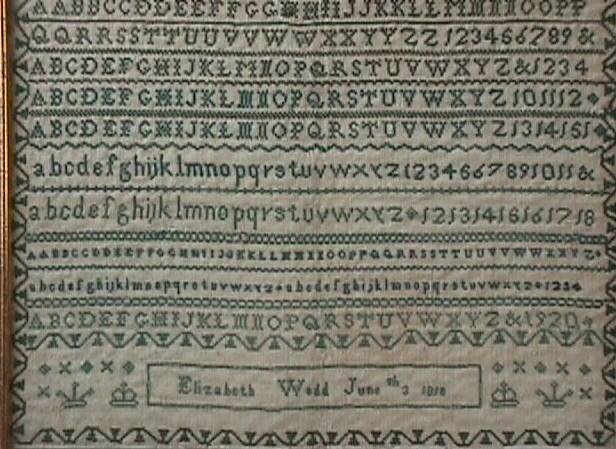 AABBCCDDEEFFGGHHIIJJKKLLMMNNOOPP
QQRRSSTTUUVVWWXXYYZZ123456789&
ABCDEFGHIJKLMNOPQRSTUVWXYZ&1234
ABCDEFGHIJKLMNOPQRSTUVWXYZ101112
ABCDEFGHIJKLMNOPQRSTUVWXYZ131415
abcdefghijklmnopqrstuvwxyz1234567891011&
abcdefghijklmnopqrstuvwxyz12131415161718
AABBCCDDEEFFGGHHIIJJKKLLMMNNOOPPQQRRSSTTUUVVWWXXYYZ
abcdefghijklmnopqrstuvwxyzabcdefghijklmnopqrstuvwxyz1234
ABCDEFGHIJKLMNOPQRSTUVWXYZ&1920
Elizabeth Wedd June th 3 1818